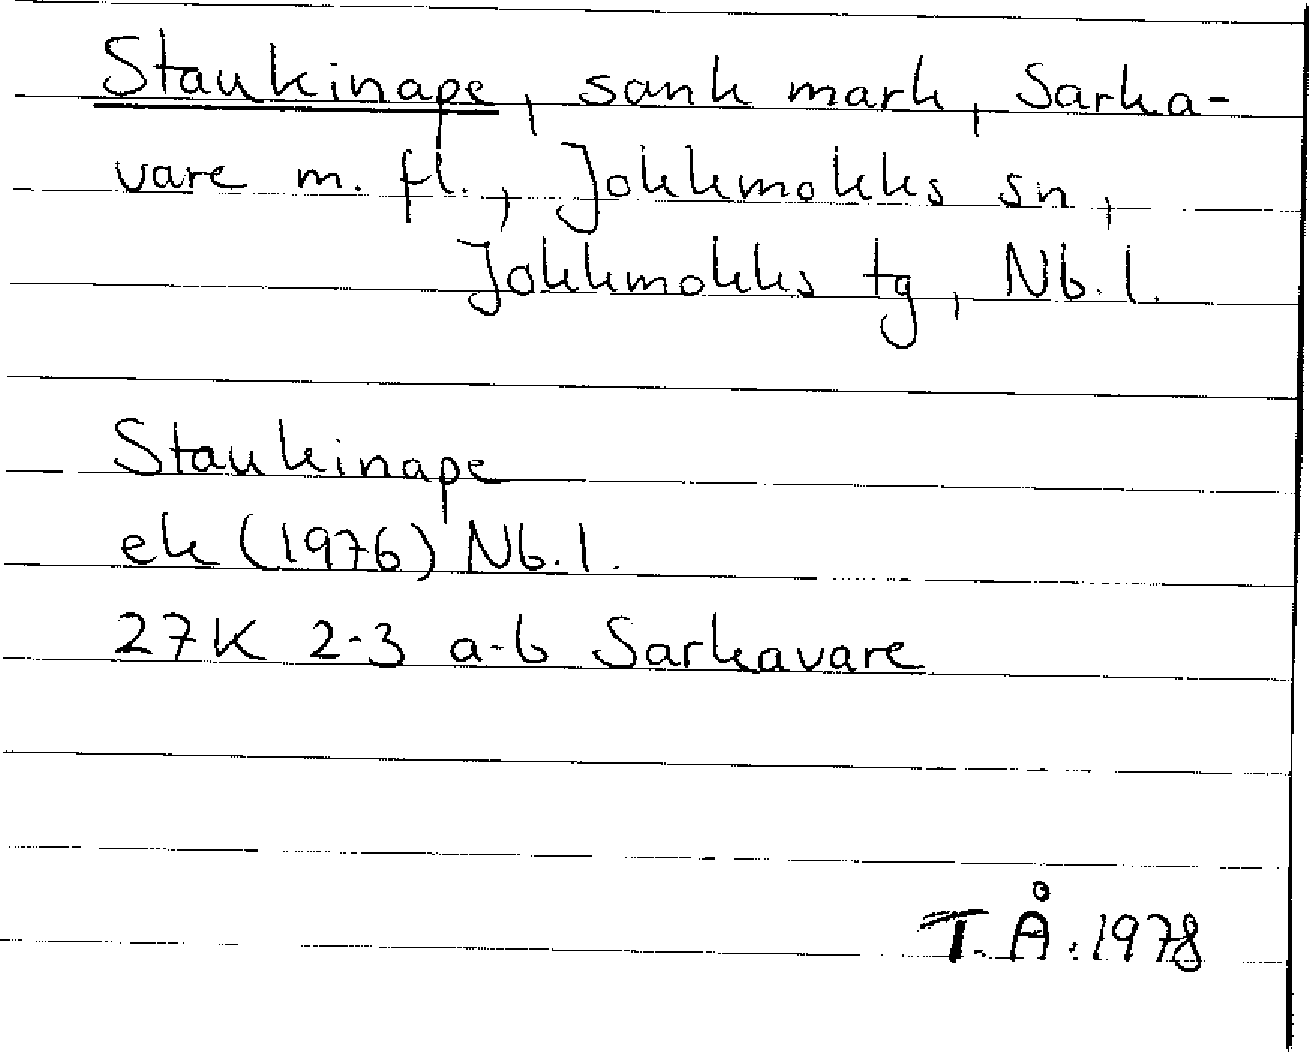 Staukinape, sank mark, Sarka-
vare m. fl., Jokkmokks sn,
Jokkmokks tg, Nb. l.
Staukinape
ek (1976) Nb. l.
27K 2-3 a-b Sarkavare
T. Å. 1978